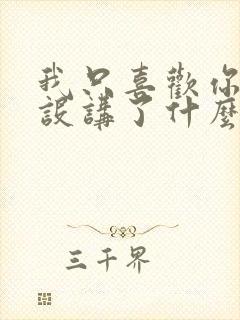 我只喜歡你
設講了什麼
三千界